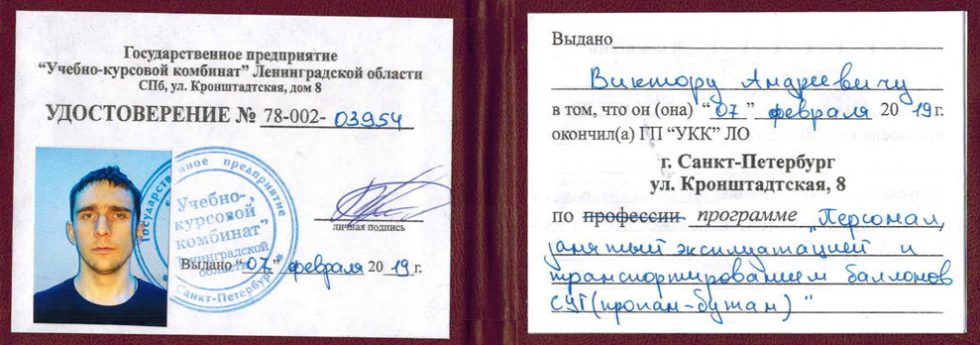 Государственное предприятие
“Учебно-курсовой комбинат” Ленинградской области
СПб, ул. Кронштадтская, дом 8
УДОСТОВЕРЕНИЕ № 78-002-03954
Государственное предприятие
Учебно-
курсовой
комбинат"
Ленинградской
области
Санкт-Петербург
личная подпись
Выдано “07” февраля 2019 г.
Выдано
Виктору Андреевичу
в том, что он (она) “07” февраля 2019 г.
окончил(а) ГП “УКК” ЛО
г. Санкт-Петербург
ул. Кронштадтская, 8
по профессии программе "Персонал,
занятый эксплуатацией и
транспортированием баллонов
СУГ (пропан-бутан)"